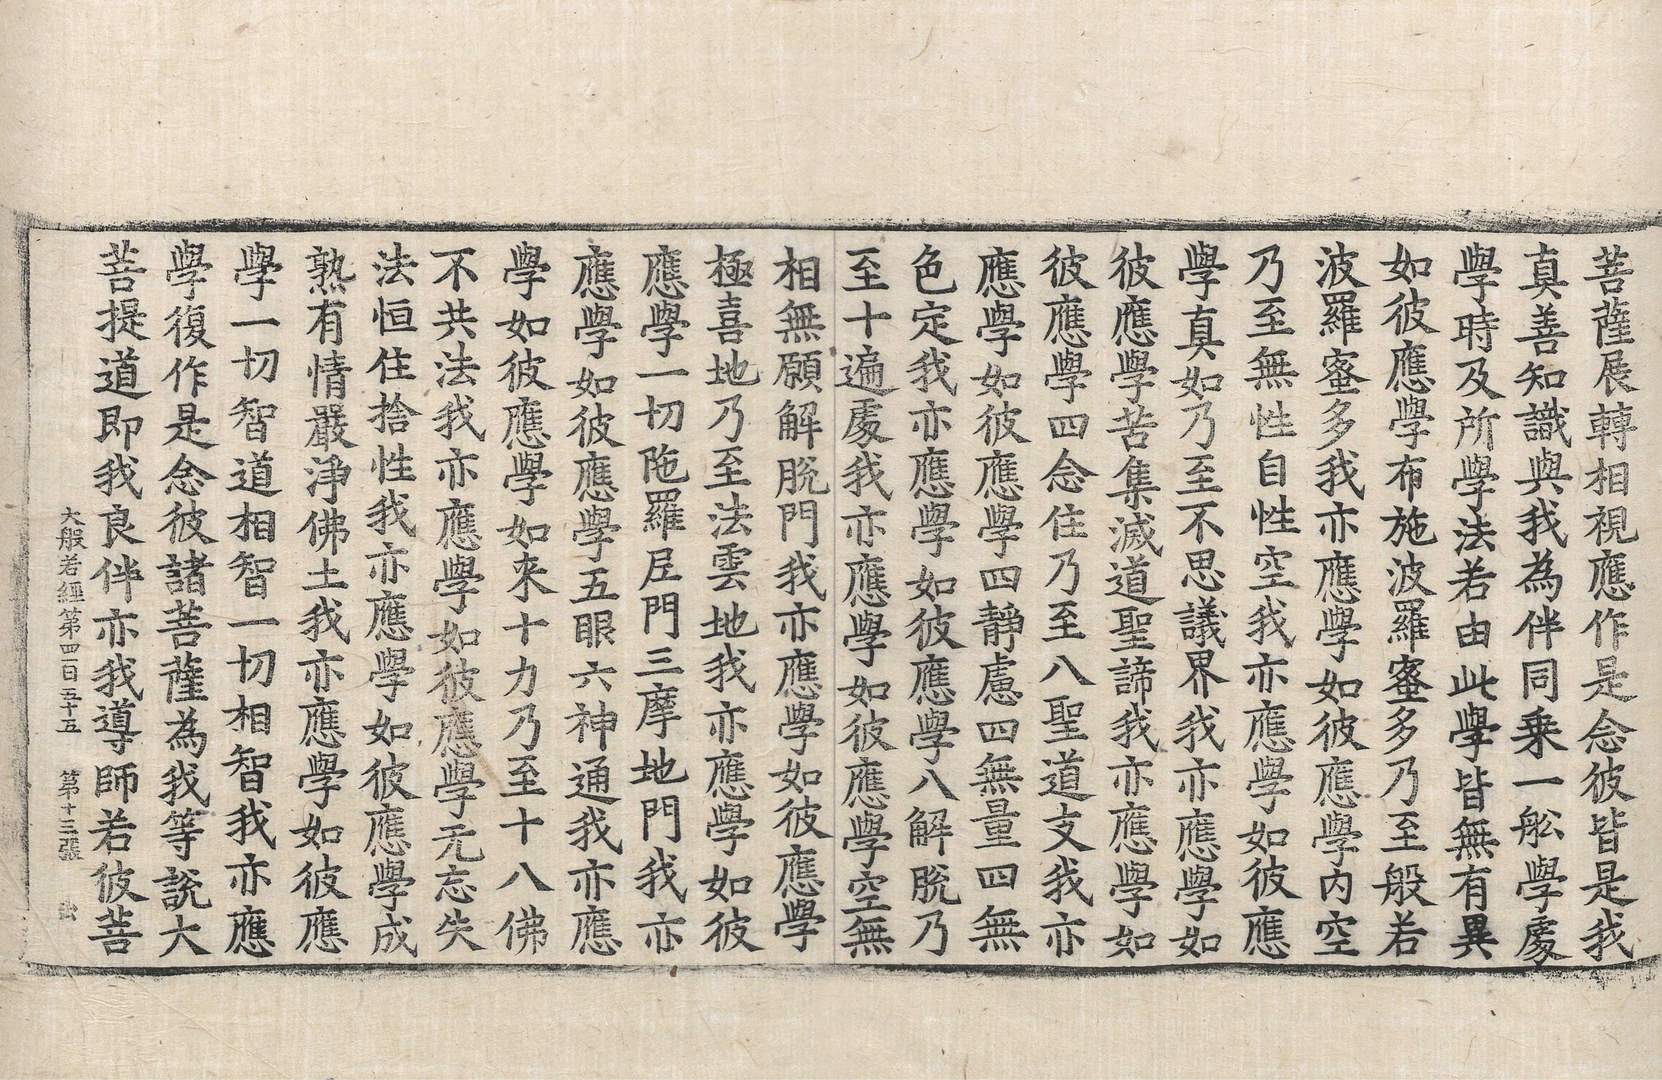 菩薩展轉相視應作是念彼皆是我
真善知識與我為伴同乗一舩學處
學時及所學法若由此學皆無有異
如彼應學布施波羅蜜多乃至般若
波羅蜜多我亦應學如彼應學內空
乃至無性自性空我亦應學如彼應
學真如乃至不思議界我亦應學如
彼應學苦集滅道聖諦我亦應學如
彼應學四念住乃至八聖道支我亦
應學如彼應學四靜慮四無量四無
色定我亦應學如彼應學八解脫乃
至十遍處我亦應學如彼應學空無
相無願解脫門我亦應學如彼應學
極喜地乃至法雲地我亦應學如彼
應學一切陁羅尼門三摩地門我亦
應學如彼應學五眼六神通我亦應
學如彼應學如來十力乃至十八佛
不共法我亦應學如彼應學无忘失
法恒住捨性我亦應學如彼應學成
熟有情嚴淨佛土我亦應學如彼應
學一切智道相智一切相智我亦應
學復作是念彼諸菩薩為我等說大
菩提道即我良伴亦我導師若彼菩
大般若經第四百五十五 第十三張